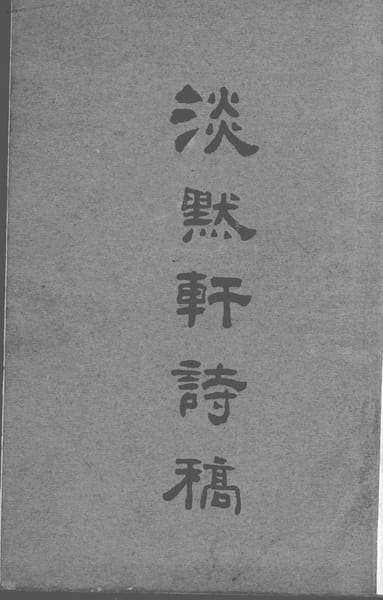 淡默軒詩稿